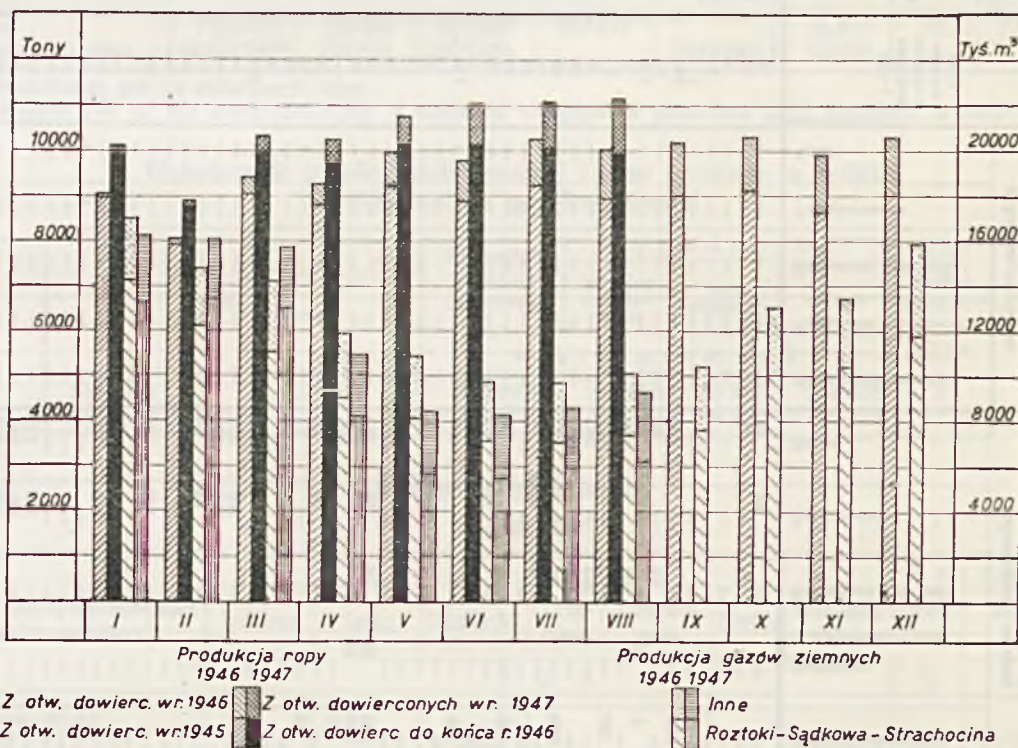 Tony
Tyś.m.³
10000
8000
6000
4000
2000
20000
16000
12000
8000
4000
I II III IV V VI VII VIII IX X XI XII
Produkcja ropy
1946 1947
Z otw. dowierc. w r. 1946
Z otw. dowierconych w r. 1947
Z otw. dowierc. w r. 1945
Z otw. dowierc do końca r. 1946
Produkcja gazów ziemnych
1946 1947
Inne
Roztoki-Sądkowa-Strachocina